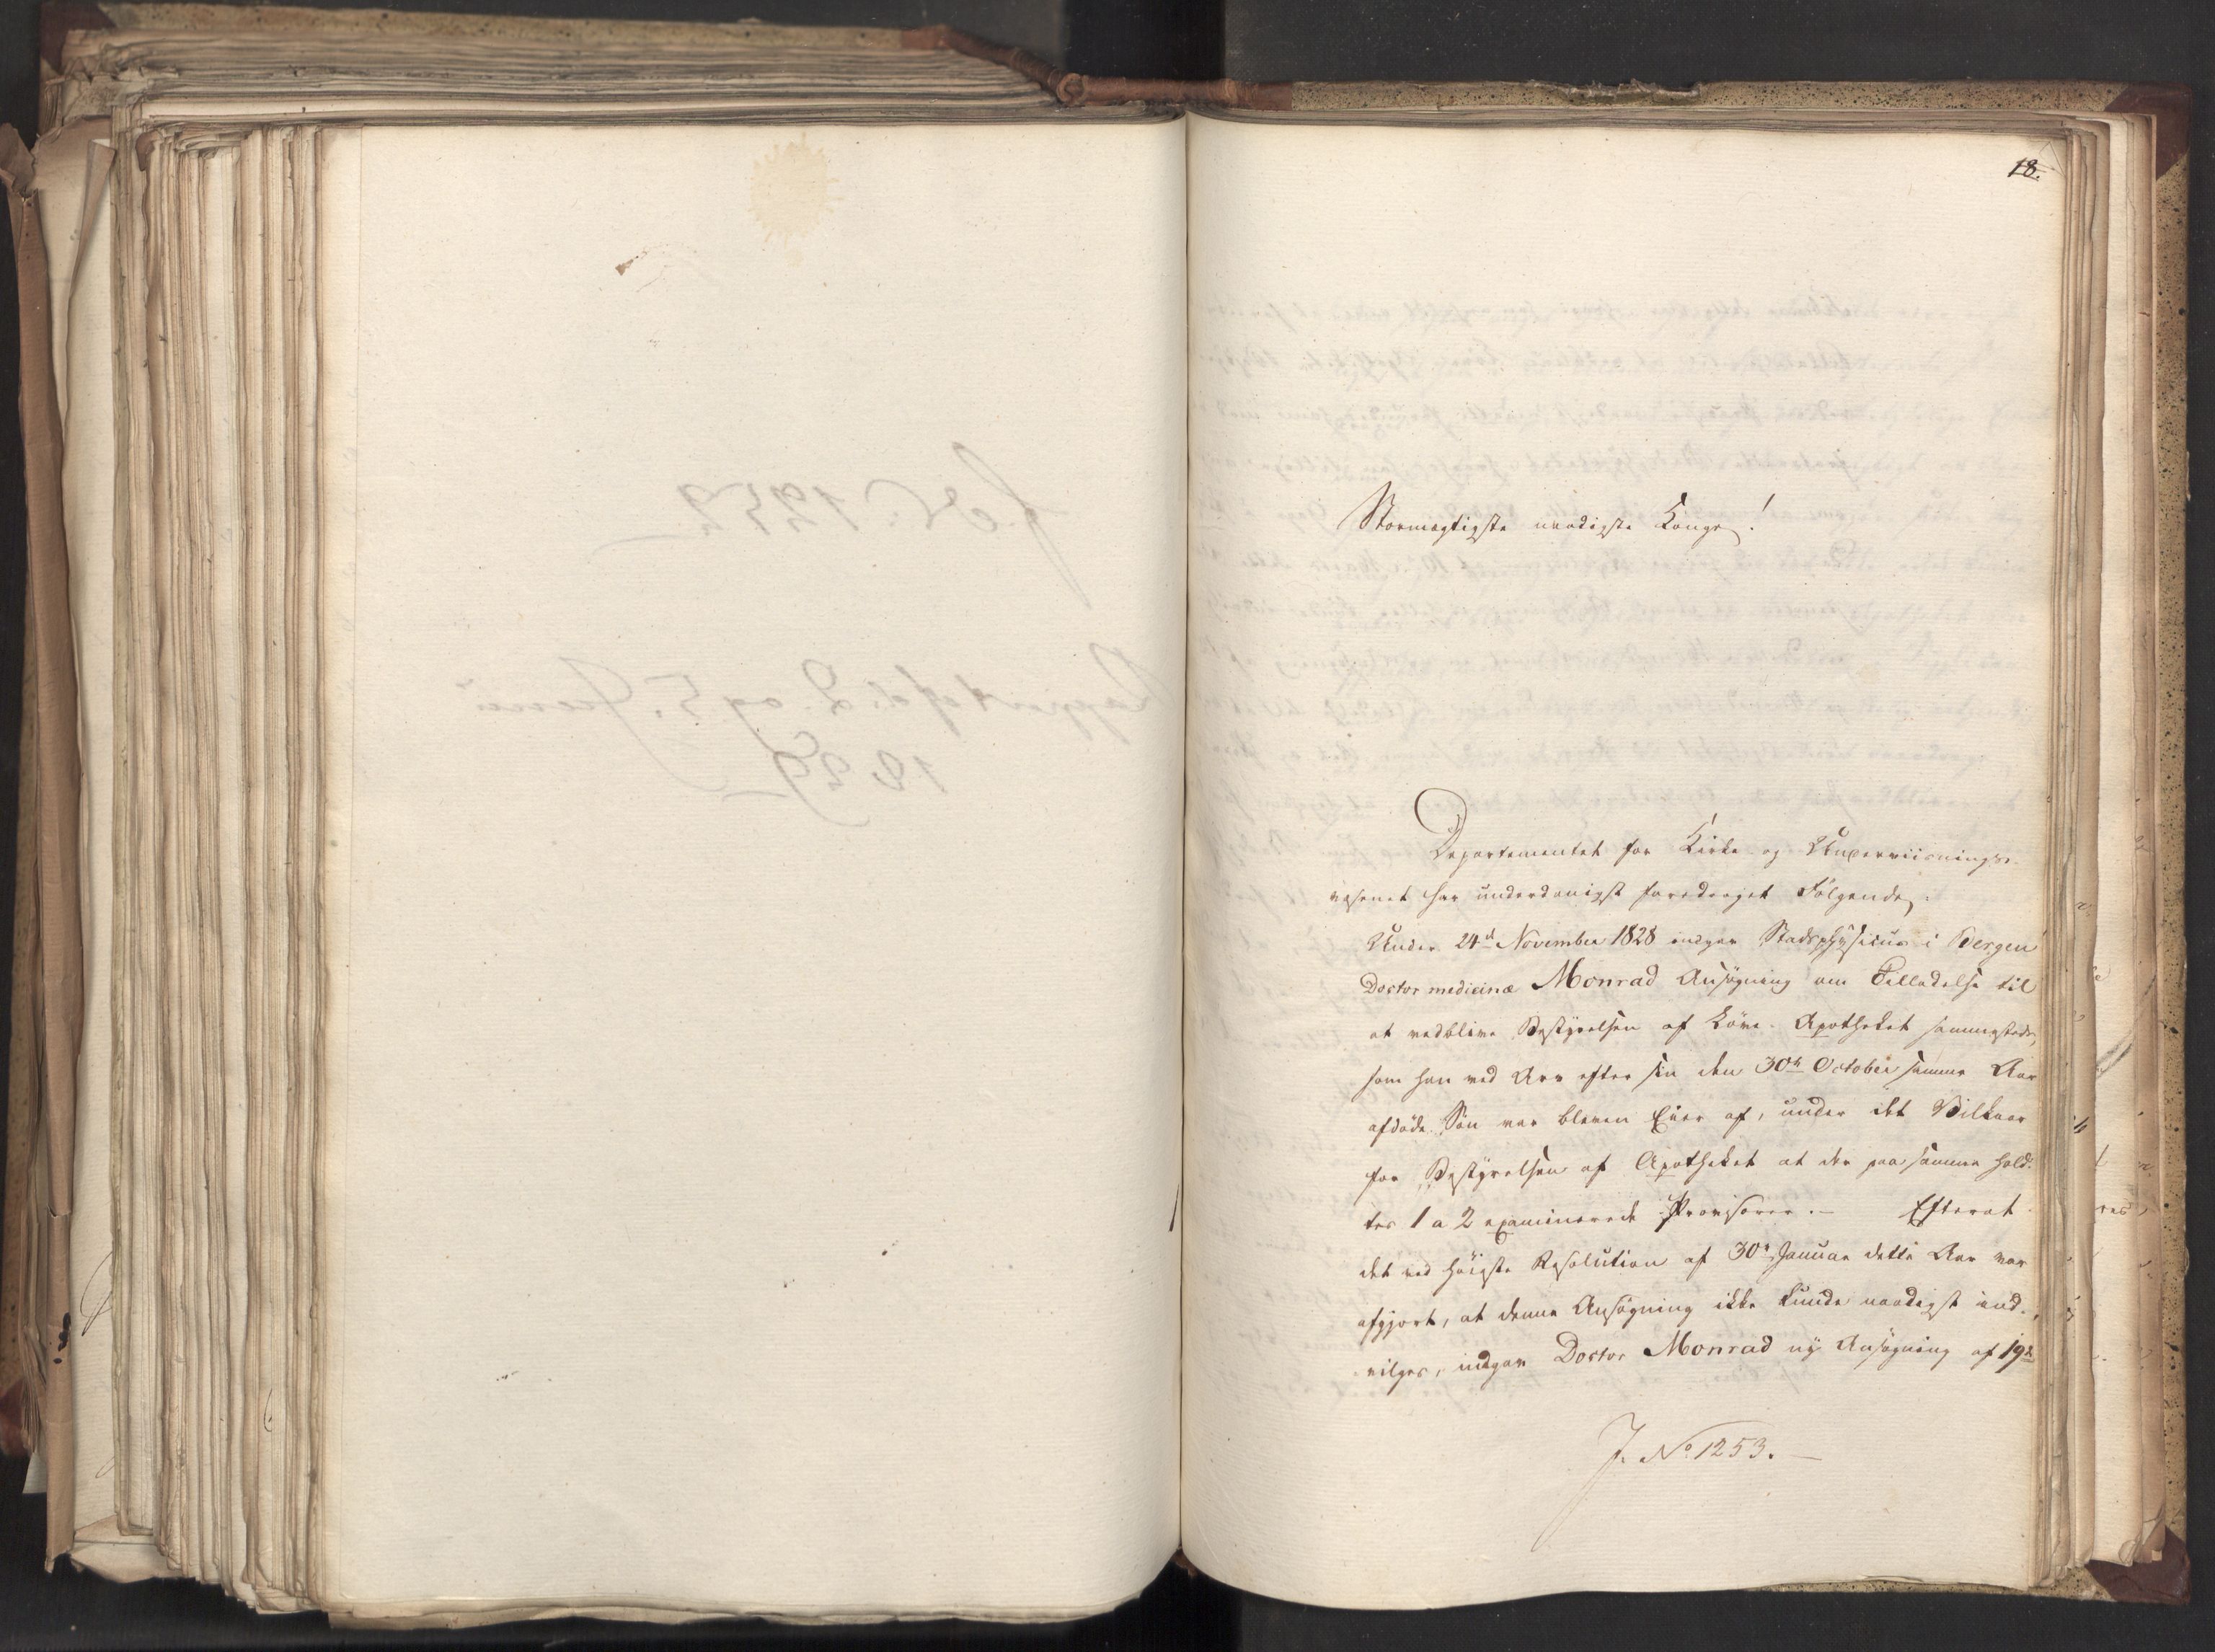 18.
Stormægtigste naadigste Konge!
Departementet for Kirke- og Underviisnings-
væsenet har underdanigst foredraget Følgende:
Under 24d November 1828 indgav Stadsphysicus i Bergen
Doctor medicinæ Monrad Ansøgning om Tilladelse til
at vedblive Bestyrelsen af Løve-Apotheket sammesteds,
som han ved Arv efter sin den 30te October samme Aar
afdøde Søn var bleven Eier af, under det Vilkaar
for Bestyrelsen af Apotheket at der paa samme hold-
tes 1 a 2 examinerede Provisorer. — Efterat
det ved høieste Resolution af 30te Januar dette Aar var
afgjort, at denne Ansøgning ikke kunde naadigst ind-
vilges, indgav Doctor Monrad ny Ansøgning af 19de
J. No 1253. —